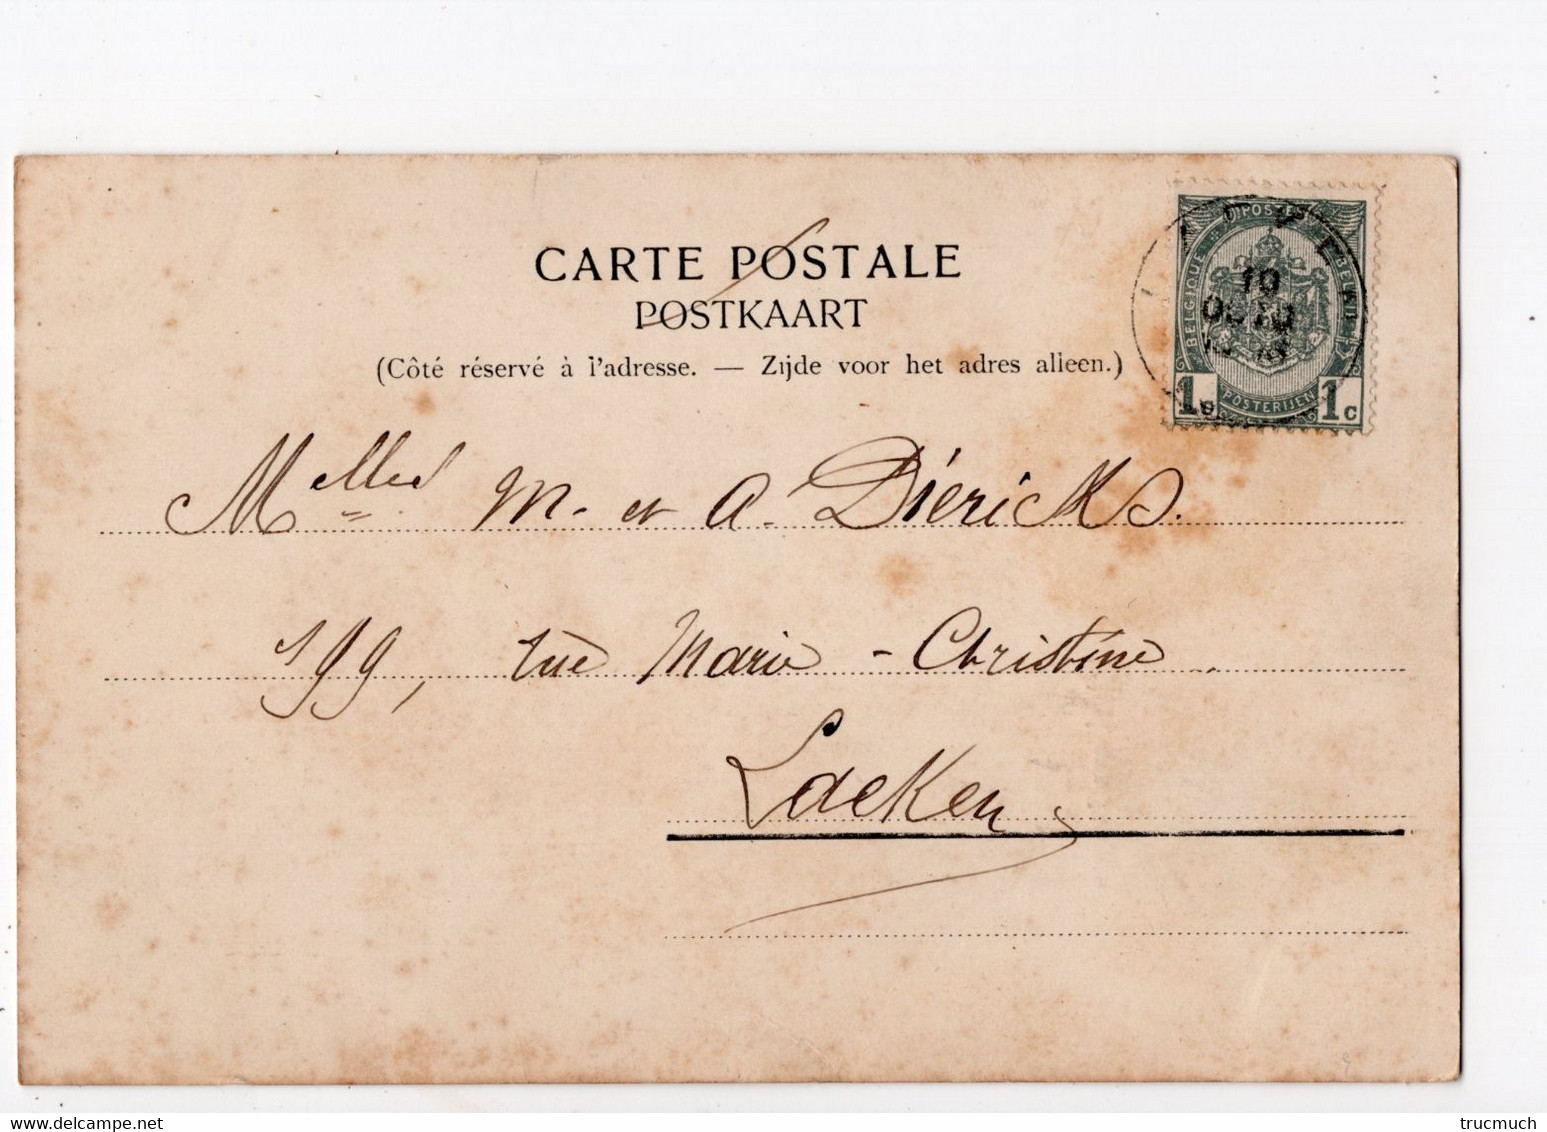 CARTE POSTALE
POSTKAART
(Côté réservé à l'adresse. — Zijde voor het adres alleen.)
POSTES
BELGIQUE
10
POSTERIJEN
1c 1c
Melles M. et A. Diéricks.
199, rue Marie-Christine
Laeken
trucmuch